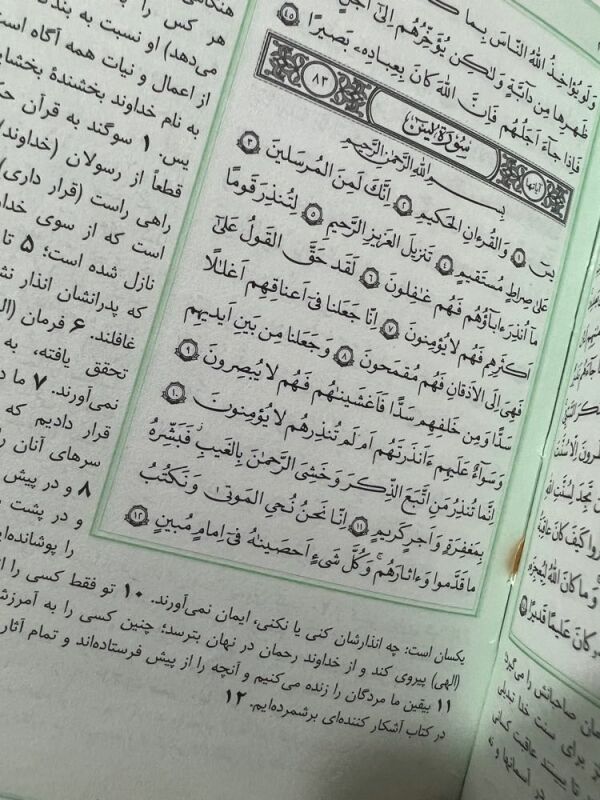 وَلَو يُؤاخِذُ اللهُ النّاسَ بِما
ظَهرِها مِن دابَّةٍ وَلٰكِن يُؤَخِّرُهُم اِلىٰ اَجَلٍ
فَاِذا جاءَ اَجَلُهُم فَاِنَّ اللهَ كانَ بِعِبادِهٖ بَصيرًا ٤٥
آیاتها سورة يسٓ ٨٣
بِسمِ اللهِ الرَّحمٰنِ الرَّحيمِ
يسٓ ١ وَالقُرءانِ الحَكيمِ ٢ اِنَّكَ لَمِنَ المُرسَلينَ ٣
عَلىٰ صِراطٍ مُستَقيمٍ ٤ تَنزيلَ العَزيزِ الرَّحيمِ ٥ لِتُنذِرَ قَومًا
ما اُنذِرَ ءاباؤُهُم فَهُم غٰفِلونَ ٦ لَقَد حَقَّ القَولُ عَلىٰ
اَكثَرِهِم فَهُم لا يُؤمِنونَ ٧ اِنّا جَعَلنا فى اَعناقِهِم اَغلٰلًا
فَهِىَ اِلَى الاَذقانِ فَهُم مُقمَحونَ ٨ وَجَعَلنا مِن بَينِ اَيديهِم
سَدًّا وَمِن خَلفِهِم سَدًّا فَاَغشَينٰهُم فَهُم لا يُبصِرونَ ٩
وَسَواءٌ عَلَيهِم ءَاَنذَرتَهُم اَم لَم تُنذِرهُم لا يُؤمِنونَ ١٠
اِنَّما تُنذِرُ مَنِ اتَّبَعَ الذِّكرَ وَخَشِىَ الرَّحمٰنَ بِالغَيبِ فَبَشِّرهُ
بِمَغفِرَةٍ وَاَجرٍ كَريمٍ ١١ اِنّا نَحنُ نُحىِ المَوتىٰ وَنَكتُبُ
ما قَدَّموا وَءاثارَهُم وَكُلَّ شَىءٍ اَحصَينٰهُ فى اِمامٍ مُبينٍ ١٢
هر کس را به
می‌دهد) او نسبت به بند
از اعمال و نیات همه آگاه است
به نام خداوند بخشندهٔ بخشای
یس. ۱ سوگند به قرآن حک
قطعاً از رسولان (خداوند)
راهی راست (قرار داری)
است که از سوی خدا
نازل شده است؛ ۵ تا
که پدرانشان انذار نش
غافلند. ۶ فرمان (اله
تحقق یافته، به
نمی‌آورند. ۷ ما د
قرار دادیم که
سرهای آنان را
۸ و در پیش
و در پشت
را پوشانده‌ای
یکسان است: چه انذارشان کنی یا نکنی، ایمان نمی‌آورند. ۱۰ تو فقط کسی را از
(الهی) پیروی کند و از خداوند رحمان در نهان بترسد؛ چنین کسی را به آمرزش
۱۱ بیقین ما مردگان را زنده می‌کنیم و آنچه را از پیش فرستاده‌اند و تمام آثار
در کتاب آشکار کننده‌ای برشمرده‌ایم. ۱۲